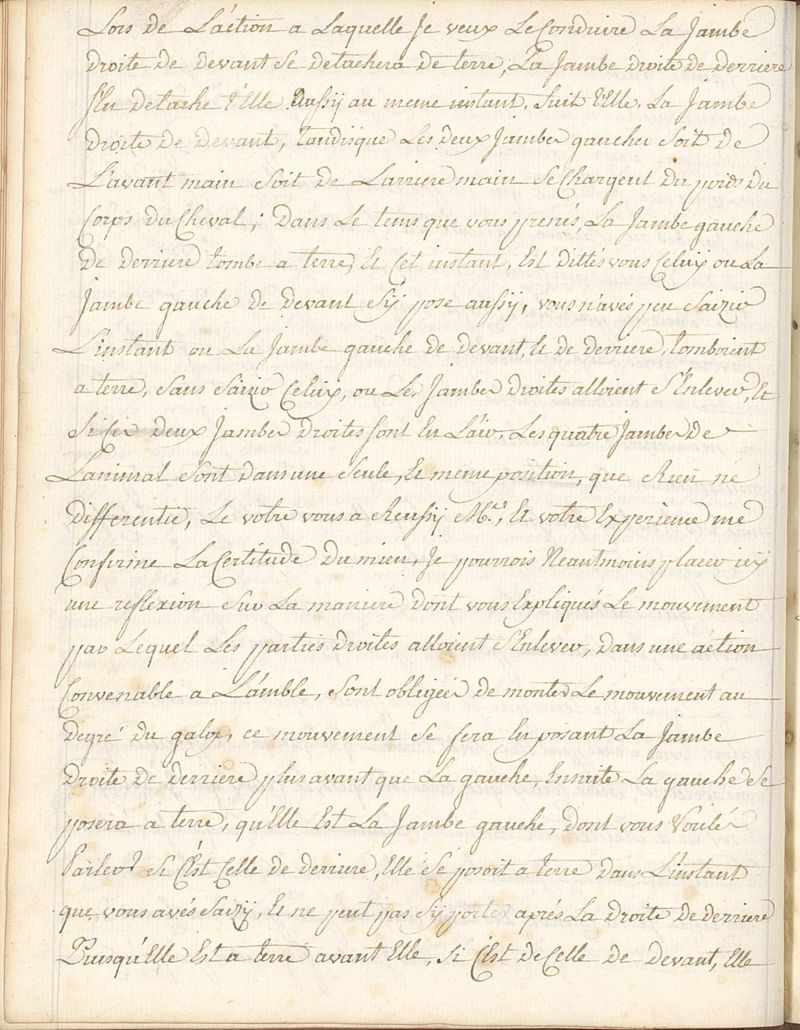 Lors de L'action a Laquelle Je veux Le Conduire La Jambe
droite de devant Se detachera de terre, La Jambe droite de derriere
S'En detache t'Elle Aussÿ au meme instant, Suit t'Elle, La Jambe
droite de devant, tandisque Les deux Jambes gauches Soit de
L'avant main Soit de Larriere main Se Chargent Du poids du
Corps Du Cheval; Dans Le tems que vous prenés, La Jambe gauche
De derriere tombe a terre, Et Cet instant, Est dittes vous Celuÿ ou La
Jambe gauche de devant S'ÿ pose aussÿ, vous n'avés peu Saizir
L'instant ou La Jambe gauche de devant, Et de derriere, tomboient
a terre, Sans Saizir Celuÿ, ou Les Jambes Droites alloient S'Enlever, Et
Si Ces deux Jambes Droites Sont En L'air, Les quatre Jambes De
Lanimal Sont dans une Seule, Et meme position, que Rien ne
differentie, Le votre vous a Reussÿ Mr., Et votre Experience me
Confirme La Certitude Du mien, Je pourrois Neautmoins placer icÿ
une reflexion Sur La maniere dont vous Expliqués Le mouvement
par Lequel Les parties droites alloient S'Enlever, Dans une action
Convenable a L'amble, Sont obligées de monter Le mouvement au
degré du galop, ce mouvement Se fera En posant La Jambe
Droite de derriere plus avant que La gauche, Ensuite La gauche Se
posera a terre, qu'Elle Est La Jambe gauche, dont vous Voulés
Parler? Si C'Est Celle de derriere, Elle Se posoit a terre dans L'instant
que vous avés Saizÿ, Et ne peut pas S'ÿ porter aprés La droite de derriere
Puisqu'Elle Est a terre avant Elle, Si C'Est de Celle de devant, Elle